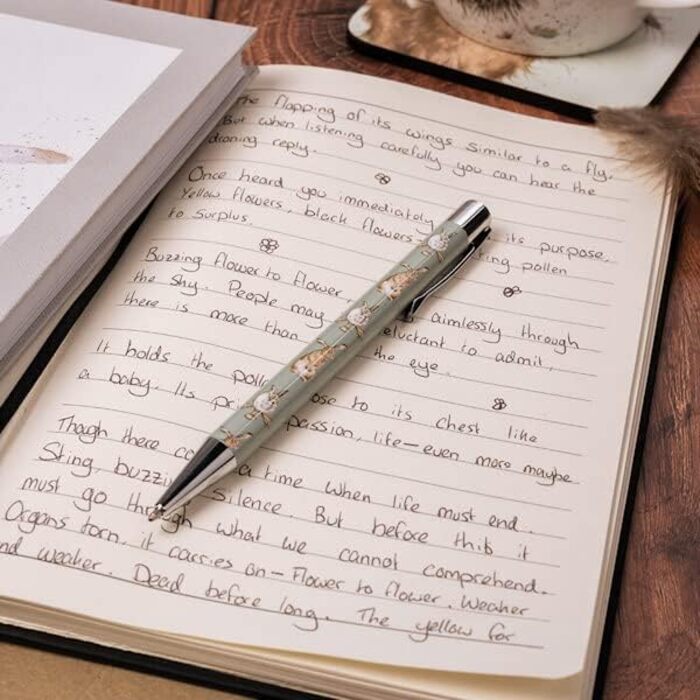 The flapping of its wings similar to a fly.
But when listening carefully you can hear the
droning reply.
Once heard you immediately its purpose.
Yellow flowers, black flowers ring pollen
to surplus.
Buzzing flower to flower, aimlessly through
the sky. People may eluctant to admit,
there is more than the eye.
It holds the poll ose to its chest like
a baby. Its pr passion, life-even more maybe.
Though there co a time when life must end.
Sting, buzzi silence But before this it
must go through what we cannot comprehend.
Organs torn, it carries on - Flower to flower. Weaker
nd weaker. Dead before long. The yellow for